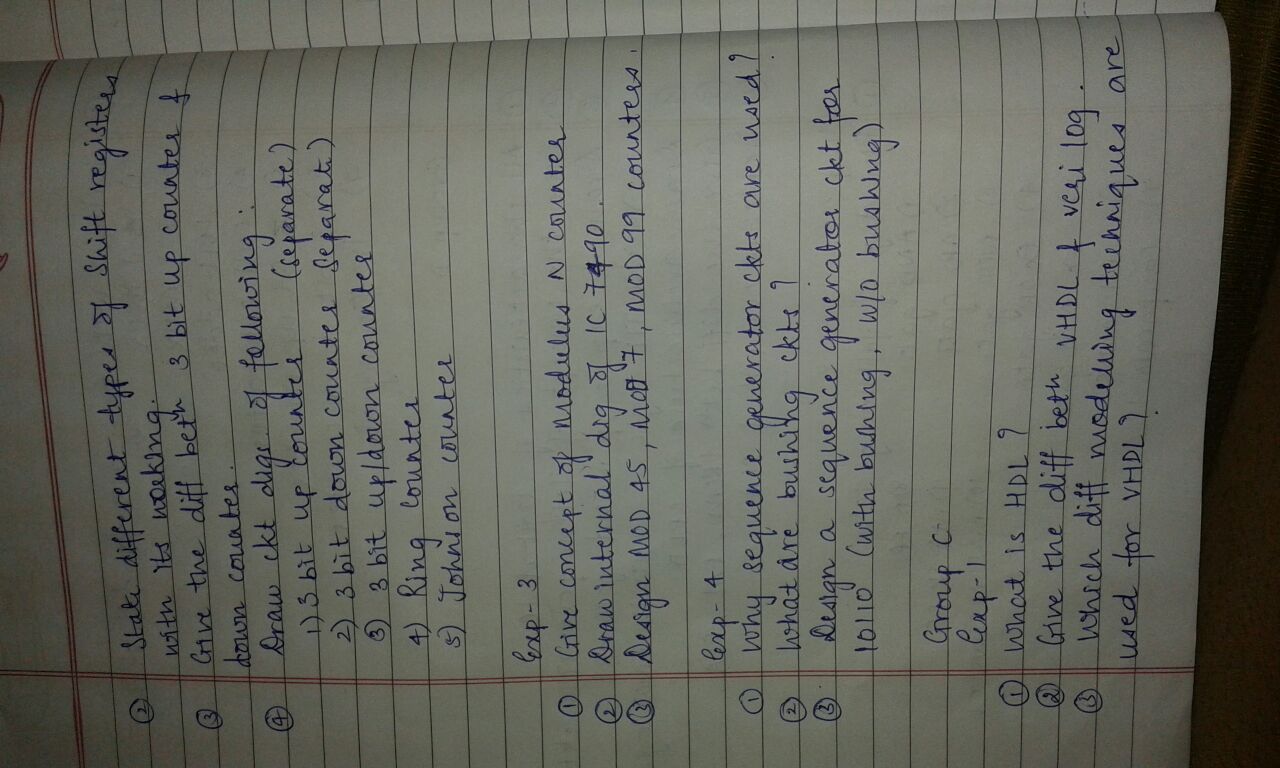 ② State different types of Shift registers
with its working.
③ Give the diff betn 3 bit up counter &
down counter.
④ Draw ckt digs. of following :
1) 3 bit up counter (separate)
2) 3 bit down counter Separate)
3) 3 bit up/down counter
4) Ring Counter
5) Johnson counter
Exp-3
① Give concept of Modulus N counter
② Draw internal dig of IC 7490.
③ Design MOD 45, MOD 7, MOD 99 counters.
Exp-4
① Why sequence generator ckts are used?
② What are bushing ckts?
③ Design a sequence generator ckt for
10110 (with bushing, w/o bushing)
Group C
Exp-1
① What is HDL?
② Give the diff betn VHDL & verilog.
③ Which diff modelling techniques are
used for VHDL?